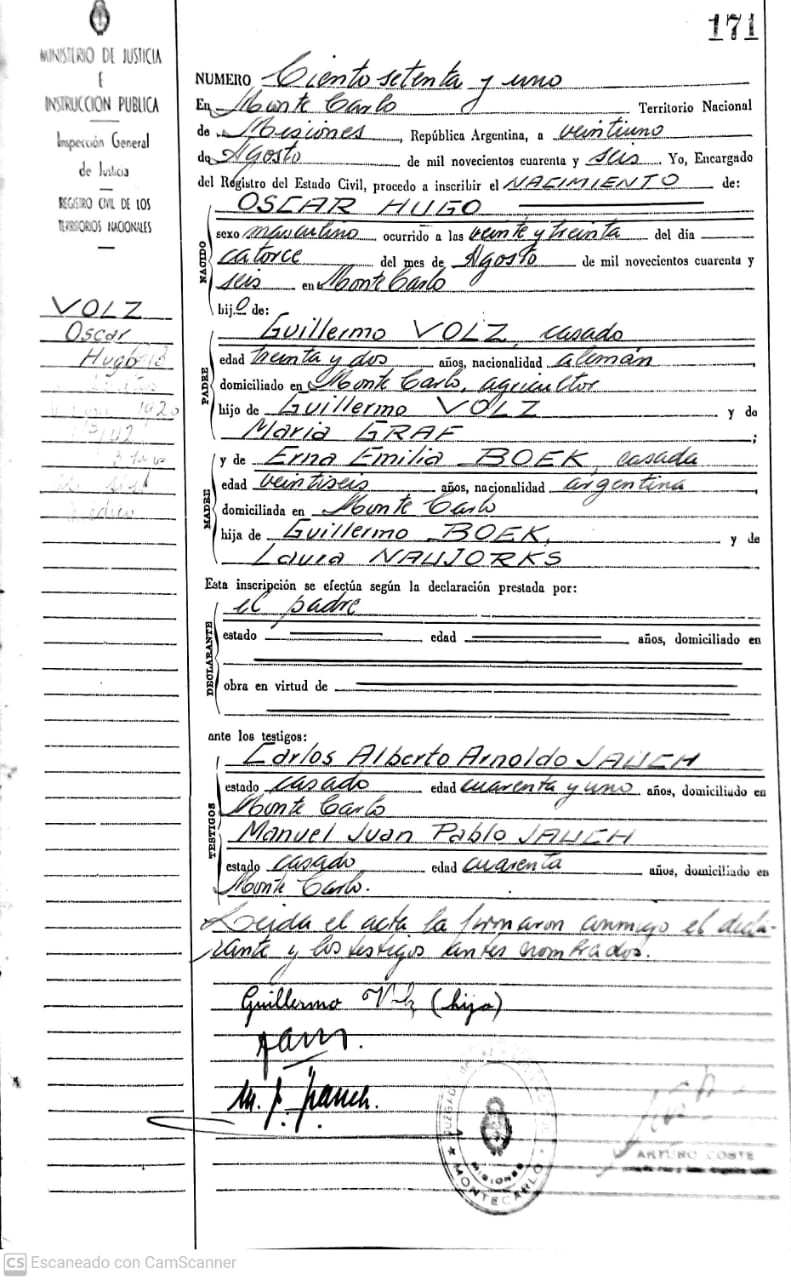 171
MINISTERIO DE JUSTICIA
E
INSTRUCCION PUBLICA
Inspección General
de Justicia
REGISTRO CIVIL DE LOS
TERRITORIOS NACIONALES
VOLZ
Oscar
Hugo
NUMERO Ciento setenta y uno
En Monte Carlo Territorio Nacional
de Misiones, República Argentina, a veintiuno
de Agosto de mil novecientos cuarenta y seis Yo, Encargado
del Registro del Estado Civil, procedo a inscribir el NACIMIENTO de:
NACIDO
OSCAR HUGO
sexo masculino ocurrido a las veinte y treinta del día
catorce del mes de Agosto de mil novecientos cuarenta y
seis en Monte Carlo
hijo de:
PADRE
Guillermo VOLZ, casado
edad treinta y dos años, nacionalidad alemán
domiciliado en Monte Carlo, agricultor
hijo de Guillermo VOLZ y de
Maria GRAF;
MADRE
y de Erna Emilia BOEK, casada
edad veintiseis años, nacionalidad argentina,
domiciliada en Monte Carlo
hija de Guillermo BOEK, y de
Laura NAUJORKS
Esta inscripción se efectúa según la declaración prestada por:
DECLARANTE
el padre
estado edad años, domiciliado en
obra en virtud de
ante los testigos:
TESTIGOS
Carlos Alberto Arnoldo JAUCH
estado casado edad cuarenta y uno años, domiciliado en
Monte Carlo
Manuel Juan Pablo JAUCH
estado casado edad cuarenta años, domiciliado en
Monte Carlo.
Leida el acta la firmaron conmigo el decla-
rante y los testigos antes nombrados.
Guillermo Volz (hijo)
M. J. Jauch.
MISIONES
MONTECARLO
ARTURO COSTE
CS Escaneado con CamScanner